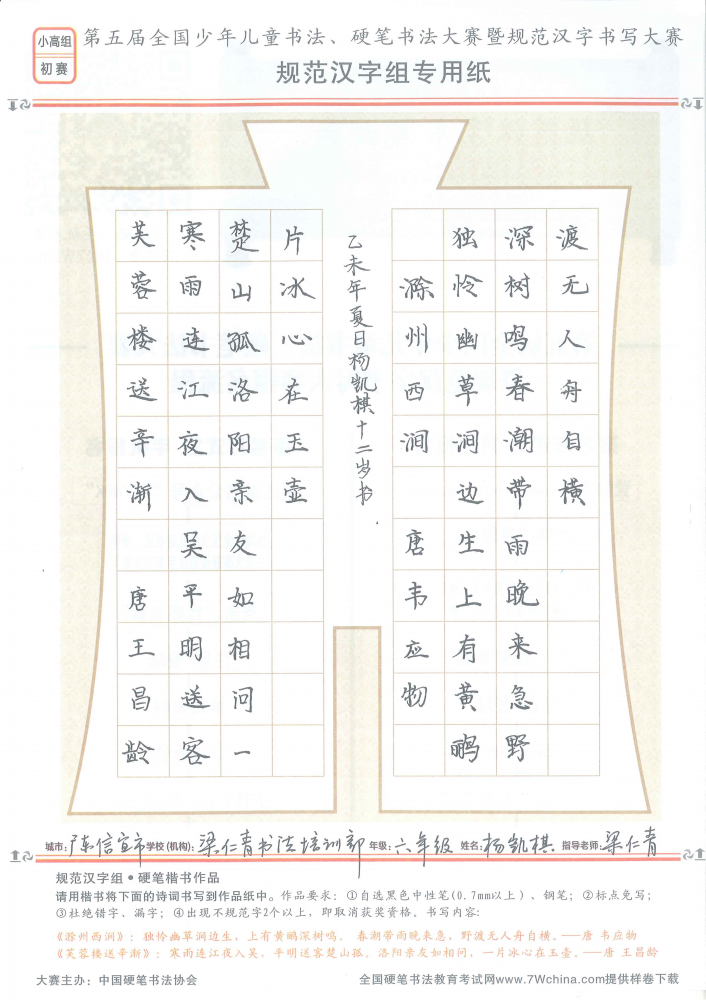 小高组
初赛
第五届全国少年儿童书法、硬笔书法大赛暨规范汉字书写大赛
规范汉字组专用纸
芙蓉楼送辛渐 唐王昌龄
寒雨连江夜入吴平明送客
楚山孤洛阳亲友如相问一
片冰心在玉壶
乙未年夏日杨凯棋十二岁书
滁州西涧 唐韦应物
独怜幽草涧边生上有黄鹂
深树鸣春潮带雨晚来急野
渡无人舟自横
城市:广东信宜市学校(机构):梁仁青书法培训部年级:六年级 姓名:杨凯棋 指导老师:梁仁青
规范汉字组•硬笔楷书作品
请用楷书将下面的诗词书写到作品纸中。作品要求：①自选黑色中性笔(0.7mm以上)、钢笔；②标点免写；
③杜绝错字、漏字；④出现不规范字2个以上，即取消获奖资格。书写内容：
《滁州西涧》：独怜幽草涧边生，上有黄鹂深树鸣。 春潮带雨晚来急，野渡无人舟自横。——唐 韦应物
《芙蓉楼送辛渐》：寒雨连江夜入吴，平明送客楚山孤。洛阳亲友如相问，一片冰心在玉壶。——唐 王昌龄
大赛主办：中国硬笔书法协会 全国硬笔书法教育考试网www.7Wchina.com提供样卷下载